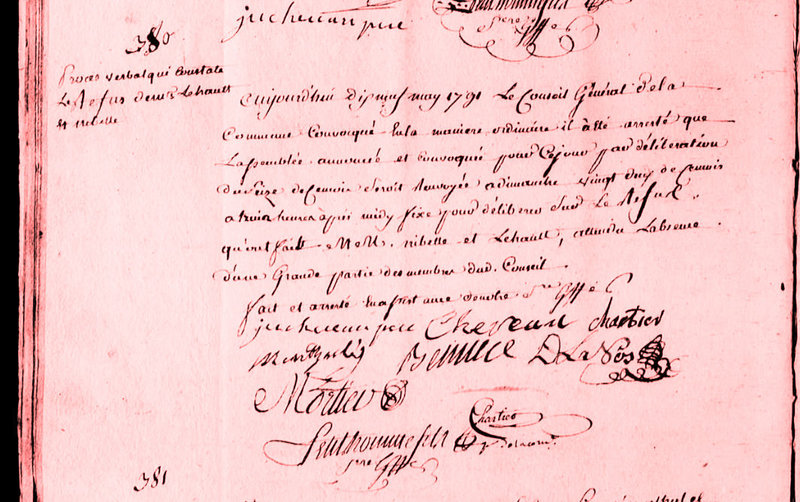 juchereau pere
Sre Gffe
380
Proces verbal qui Constate
Le Refus de mrs Lehault
et ribelle
aujourd'huy dixneuf may 1791 Le Conseil Général de la
Commune Convoqué En la maniere ordinaire il a été arresté que
L'assemblée annoncée et Convoquée pour Cejour par déliberation
du seize de Cemois seroit Renvoyée a dimanche vingt deux de Cemois
a trois heures après midy fixe pour déliberer sur Le Refus
qu'ont fait MM. ribelle et Lehault, attendu L'absence
d'une Grande partie des membres dud. Conseil
fait et arresté
juchereau pere Chereau Chartier
D La Nos
Mortier
Chartier
Sre Gffe
381